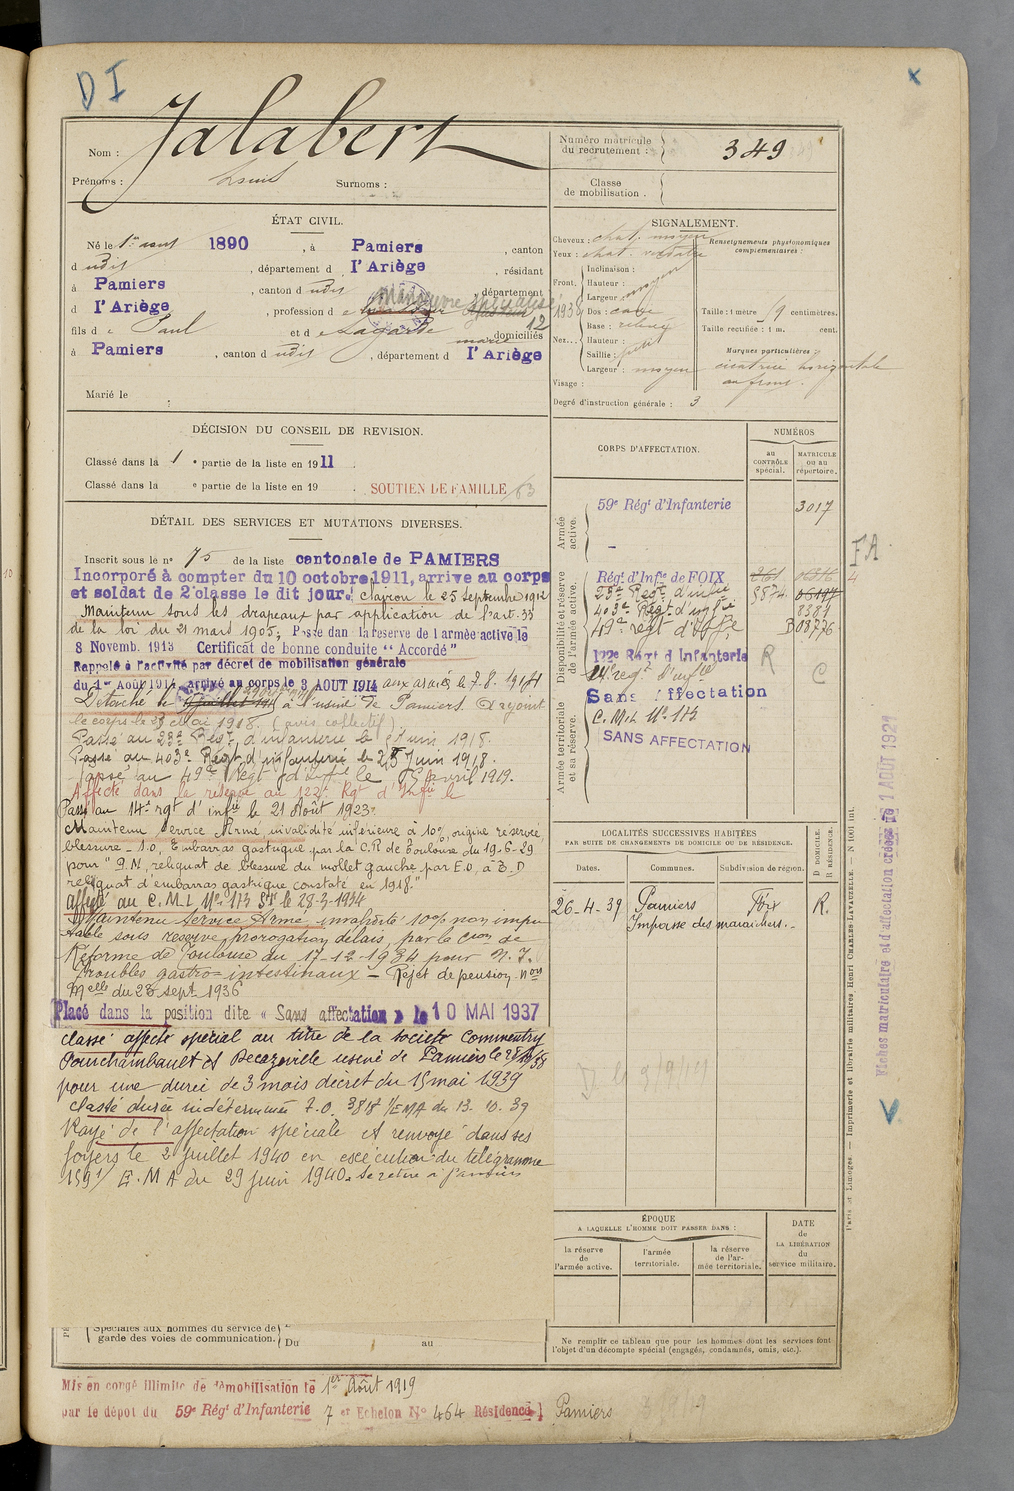 D I
x
Nom : Jalabert
Prénoms : Louis Surnoms :
Numéro matricule du recrutement : 349
Classe de mobilisation :
ÉTAT CIVIL.
Né le 1er août 1890, à Pamiers, canton
d udit, département d l'Ariège, résidant
à Pamiers, canton d udit, département
d l'Ariège, profession d e manœuvre spécialisé
12
fils d e Paul et d e Lagarde domiciliés
à Pamiers, canton d udit, département d l'Ariège
Marié le
SIGNALEMENT.
Cheveux : chat. moyen
Yeux : chat.
Renseignements physionomiques complémentaires :
Front. Inclinaison :
Hauteur :
Largeur : moyen
Nez. Dos : cave
Base : relevé
Hauteur :
Saillie : petit
Largeur : moyen
Visage :
Degré d'instruction générale : 3
Taille : 1 mètre centimètres.
Taille rectifiée : 1 m. cent.
Marques particulières :
cicatrice horizontale
au front.
DÉCISION DU CONSEIL DE REVISION.
Classé dans la 1e partie de la liste en 1911
Classé dans la e partie de la liste en 19 . SOUTIEN DE FAMILLE 63
DÉTAIL DES SERVICES ET MUTATIONS DIVERSES.
Inscrit sous le n° 75 de la liste cantonale de PAMIERS
Incorporé à compter du 10 octobre 1911, arrive au corps
et soldat de 2e classe le dit jour. Clairon le 25 septembre 1912
Maintenu sous les drapeaux par application de l'art. 33
de la loi du 21 mars 1905, Passé dans la réserve de l'armée active le
8 Novemb. 1913 Certificat de bonne conduite "Accordé"
Rappelé à l'activité par décret de mobilisation générale
du 1er Août 1914, arrivé au corps le 3 AOUT 1914 aux armées le 7.8.1914
Détaché le à l'usine de Pamiers. Rejoint
le corps le mai 1918. (avis collectif)
Passé au 23e Régt d'infanterie le juin 1918.
Passé au 403e Régt d'infanterie le 25 Juin 1918.
Passé au 49e Régt d'inftie le avril 1919.
Affecté dans la réserve au 122e Rgt d'Infie le
Passé au 14e rgt d'infie le 21 Août 1923.
Maintenu Service Armé, invalidité inférieure à 10%, origine réservée
blessure - 10, Embarras gastrique par la C.R de Toulouse du 19-6-29
pour "P.M. reliquat de blessure du mollet gauche par E.O, à B.D
reliquat d'embarras gastrique constaté en 1918."
Affecté au C.M.I. N° 173 le 28-3-1934
Maintenu Service Armé, invalidité 10% non impu-
table sous réserve prorogation délais, par la Cion de
Réforme de Toulouse du 17-12-1934 pour N.I.
troubles gastro-intestinaux - Rejet de pension
Melle du 28 sept 1936
Placé dans la position dite « Sans affectation » le 10 MAI 1937
classé affecté spécial au titre de la société Commentry
Fourchambault et Decazeville usine de Pamiers le
pour une durée de 3 mois décret du 15 mai 1939
Classé durée indéterminée F.O. 3818 1/EMA du 13.10.39
Rayé de l'affectation spéciale et renvoyé dans ses
foyers le 2 juillet 1940 en exécution du télégramme
1591/ E.M.A du 29 juin 1940. Se retire à Pamiers
spéciales aux hommes du service de garde des voies de communication. Du au
CORPS D'AFFECTATION.
NUMÉROS
au CONTRÔLE spécial.
MATRICULE ou au répertoire.
Armée active.
59e Régt d'Infanterie 3017
Disponibilité et réserve de l'armée active.
Régt d'Infie de FOIX
23e Régt d'infie
403e Régt d'infie 8389
49e régt d'Infie
122e Régt d'Infanterie R
14e reg. d'infie C
Armée territoriale et sa réserve.
Sans affectation
C.M.I. N° 173
SANS AFFECTATION
FA
4
LOCALITÉS SUCCESSIVES HABITÉES
PAR SUITE DE CHANGEMENTS DE DOMICILE OU DE RÉSIDENCE.
Dates. Communes. Subdivision de région. D DOMICILE. R RÉSIDENCE.
26-4-39 Pamiers Foix R.
Impasse des maraîchers.
ÉPOQUE
A LAQUELLE L'HOMME DOIT PASSER DANS :
la réserve de l'armée active.
l'armée territoriale.
la réserve de l'armée territoriale.
DATE de LA LIBÉRATION du service militaire.
Ne remplir ce tableau que pour les hommes dont les services font l'objet d'un décompte spécial (engagés, condamnés, omis, etc.).
Mis en congé illimité de démobilisation le 1er Août 1919
par le dépôt du 59e Régt d'Infanterie 7er Echelon N° 464 Résidence Pamiers
Fiches matriculaire et d'affectation créées le 1 AOUT 1921
Paris et Limoges. — Imprimerie et librairie militaires Henri CHARLES-LAVAUZELLE. — N° 1001 int.